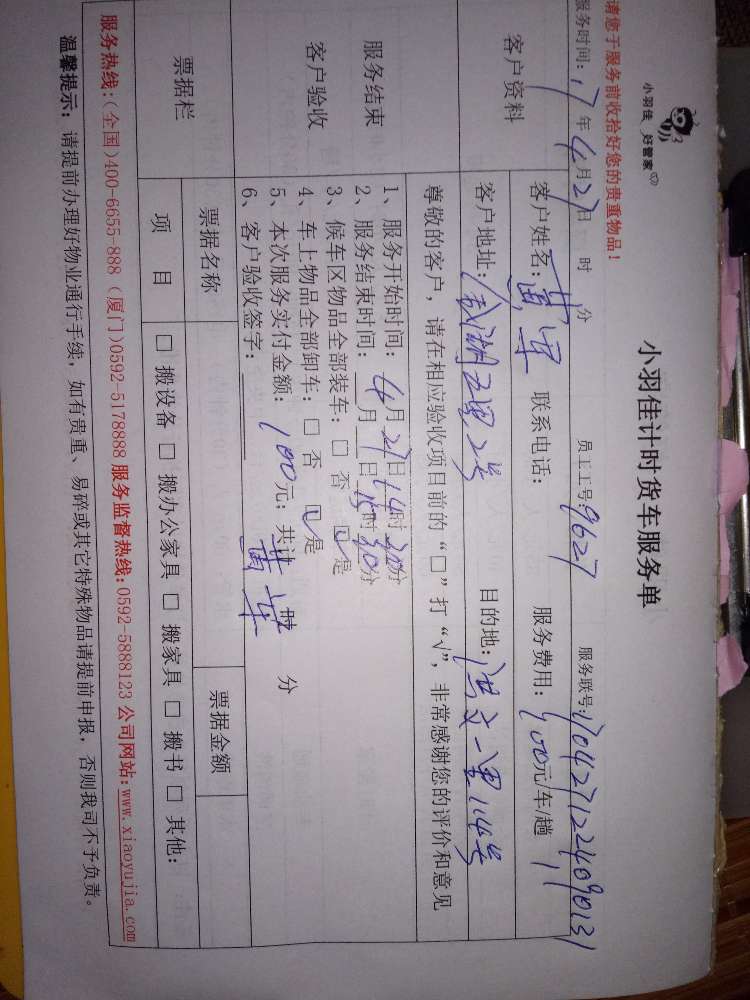 小羽佳 好管家
小羽佳计时货车服务单
请您于服务前收拾好您的贵重物品！
服务时间：17年4月27日 时 分 员工工号：9627 服务联号：1704271224090131
客户资料
客户姓名：黄军 联系电话： 服务费用：100元/车/趟
客户地址：金湖五里2号 目的地：洪文一里14号
尊敬的客户，请在相应验收项目前的“□”打“√”，非常感谢您的评价和意见
服务结束
客户验收
1、服务开始时间：4月27日14时30分
2、服务结束时间： 月 日15时30分
3、候车区物品全部装车：□ 否 ☑是
4、车上物品全部卸车：□ 否 ☑是
5、本次服务实付金额：100元；共计 时 分
6、客户验收签字：黄军
票据栏
票据名称 票据金额
项 目 □ 搬设备 □ 搬办公家具 □ 搬家具 □ 搬书 □ 其他：
服务热线：(全国)400-6655-888 (厦门)0592-5178888 服务监督热线：0592-5888123 公司网站：www.xiaoyujia.com
温馨提示：请提前办理好物业通行手续，如有贵重、易碎或其它特殊物品请提前申报，否则我司不予负责。